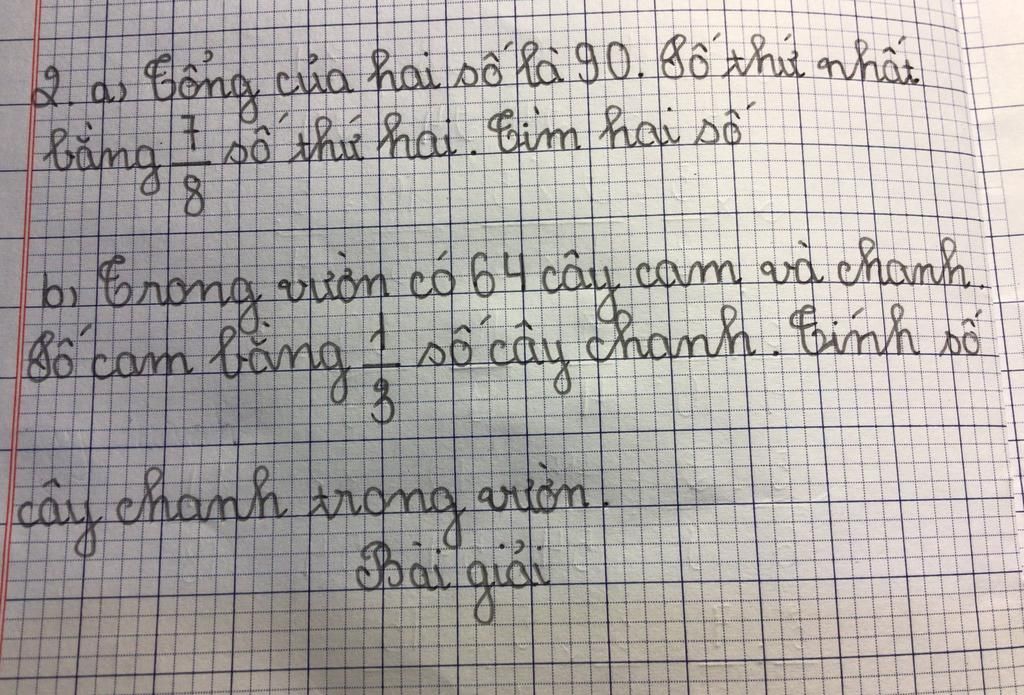 2. a, Tổng của hai số là 90. Số thứ nhất
bằng 7/8 số thứ hai. Tìm hai số
b, Trong vườn có 64 cây cam và chanh.
Số cam bằng 1/3 số cây chanh. Tính số
cây chanh trong vườn.
Bài giải